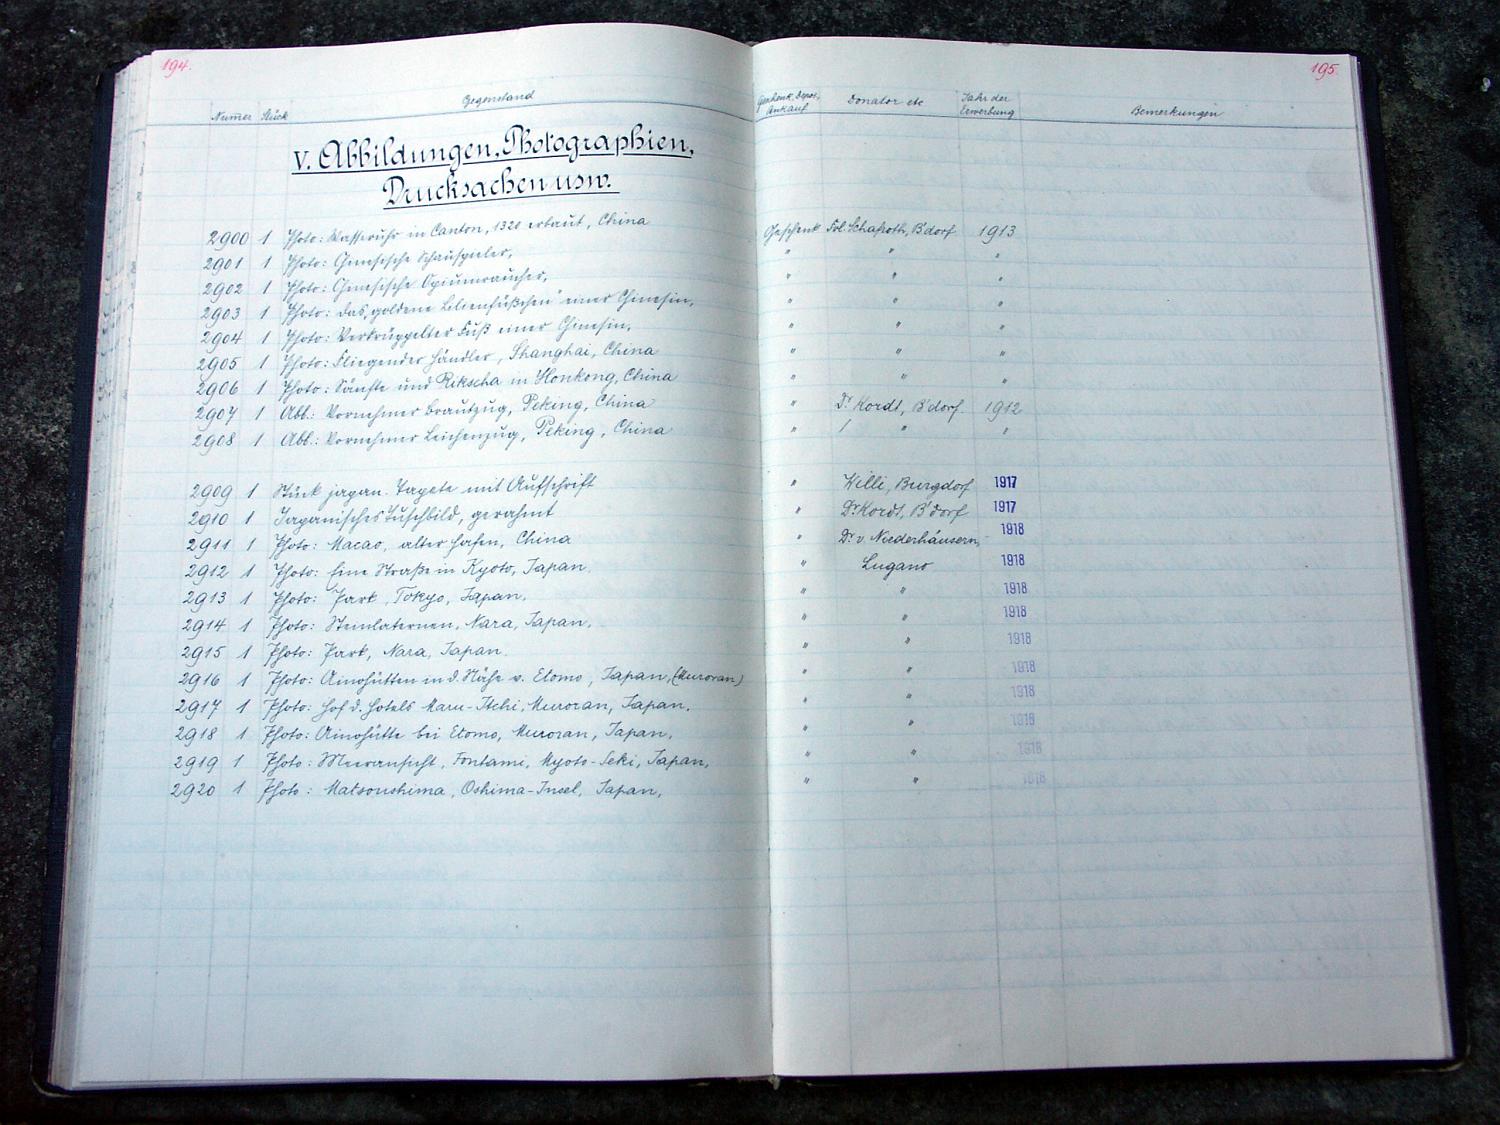 194.
195.
Numer Stück Gegenstand Geschenk, Depos, Ankauf Donator etc Jahr der Erwerbung Bemerkungen
V. Abbildungen, Photographien,
Drucksachen usw.
2900 1 Photo: Wasseruhr in Canton, 1320 erbaut, China Geschenk Frl. Schafroth, B'dorf 1913
2901 1 Photo: Chinesische Schauspieler, " " "
2902 1 Photo: Chinesische Opiumraucher, " " "
2903 1 Photo: Das "goldene Lilienfüßchen" einer Chinesin, " " "
2904 1 Photo: Verkrüppelter Fuß einer Chinesin, " " "
2905 1 Photo: Fliegender Händler, Shanghai, China " " "
2906 1 Photo: Sänfte und Rikscha in Honkong, China " " "
2907 1 Abb.: Vornehmer Brautzug, Peking, China " Dr. Kordt, B'dorf. 1912
2908 1 Abb.: Vornehmer Leichenzug, Peking, China " " "
2909 1 Stück japan. Tapete mit Aufschrift " Willi, Burgdorf 1917
2910 1 Japanisches Tuschbild, gerahmt " Dr. Kordt, B'dorf 1917
2911 1 Photo: Macao, alter Hafen, China " Dr. v. Niederhäusern, 1918
2912 1 Photo: Eine Straße in Kyoto, Japan. " Lugano 1918
2913 1 Photo: Park, Tokyo, Japan. " " 1918
2914 1 Photo: Steinlaternen, Nara, Japan. " " 1918
2915 1 Photo: Park, Nara, Japan. " " 1918
2916 1 Photo: Ainohütten in d. Nähe v. Etomo, Japan, (Muroran) " " 1918
2917 1 Photo: Hof d. Hotels Maru-Itchi, Muroran, Japan. " " 1918
2918 1 Photo: Ainohütte bei Etomo, Muroran, Japan. " " 1918
2919 1 Photo: Meeransicht, Fontami, Myoto-Seki, Japan, " " 1918
2920 1 Photo: Matsoushima, Oshima-Insel, Japan, " " 1918